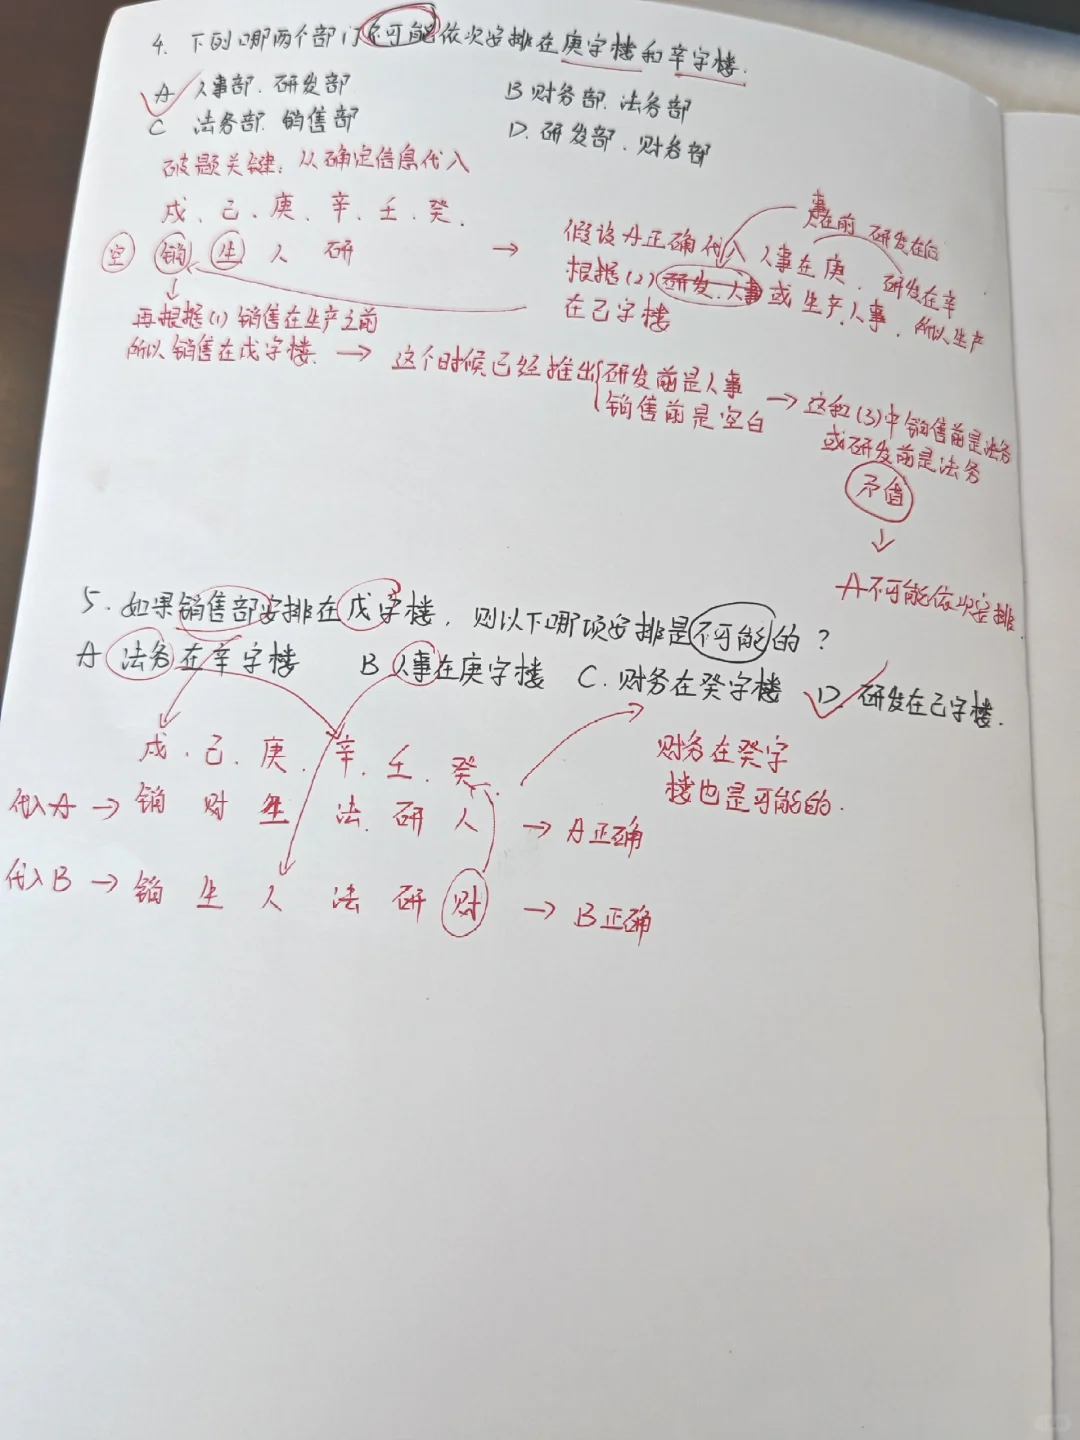 4. 下列哪两个部门不可能依次安排在庚字楼和辛字楼.
A 人事部.研发部 B 财务部.法务部
C 法务部.销售部 D. 研发部.财务部
破题关键:从确定信息代入
戊、己、庚、辛、壬、癸.
空 销 生 人 研 →
假设A正确代入 人事在庚.研发在辛
事在前 研发在后
根据(2)研发.人事或生产.人事.所以生产
在己字楼
再根据(1)销售在生产之前
所以销售在戊字楼. → 这个时候已经推出{研发前是人事
销售前是空白
→ 这和(3)中销售前是法务
或研发前是法务
矛盾
↓
A不可能依次安排.
5. 如果销售部安排在戊字楼,则以下哪项安排是不可能的?
A 法务在辛字楼 B 人事在庚字楼 C. 财务在癸字楼 D. 研发在己字楼.
戊.己.庚.辛.壬.癸.
财务在癸字
楼也是可能的.
代入A → 销 财 生 法 研 人 → A正确
代入B → 销 生 人 法 研 财 → B正确